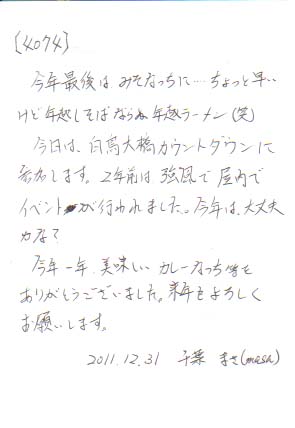 [4074]
今年最後は みそなっちに…ちょっと早い
けど年越しそばならぬ年越ラーメン(笑)
今日は、白鳥大橋カウントダウンに
参加します。2年前は強風で屋内で
イベントが行われました。今年は、大丈夫
かな?
今年一年 美味しい カレーなっち等を
ありがとうございました。来年もよろしく
お願いします。
2011.12.31 千葉 まさ(masa)